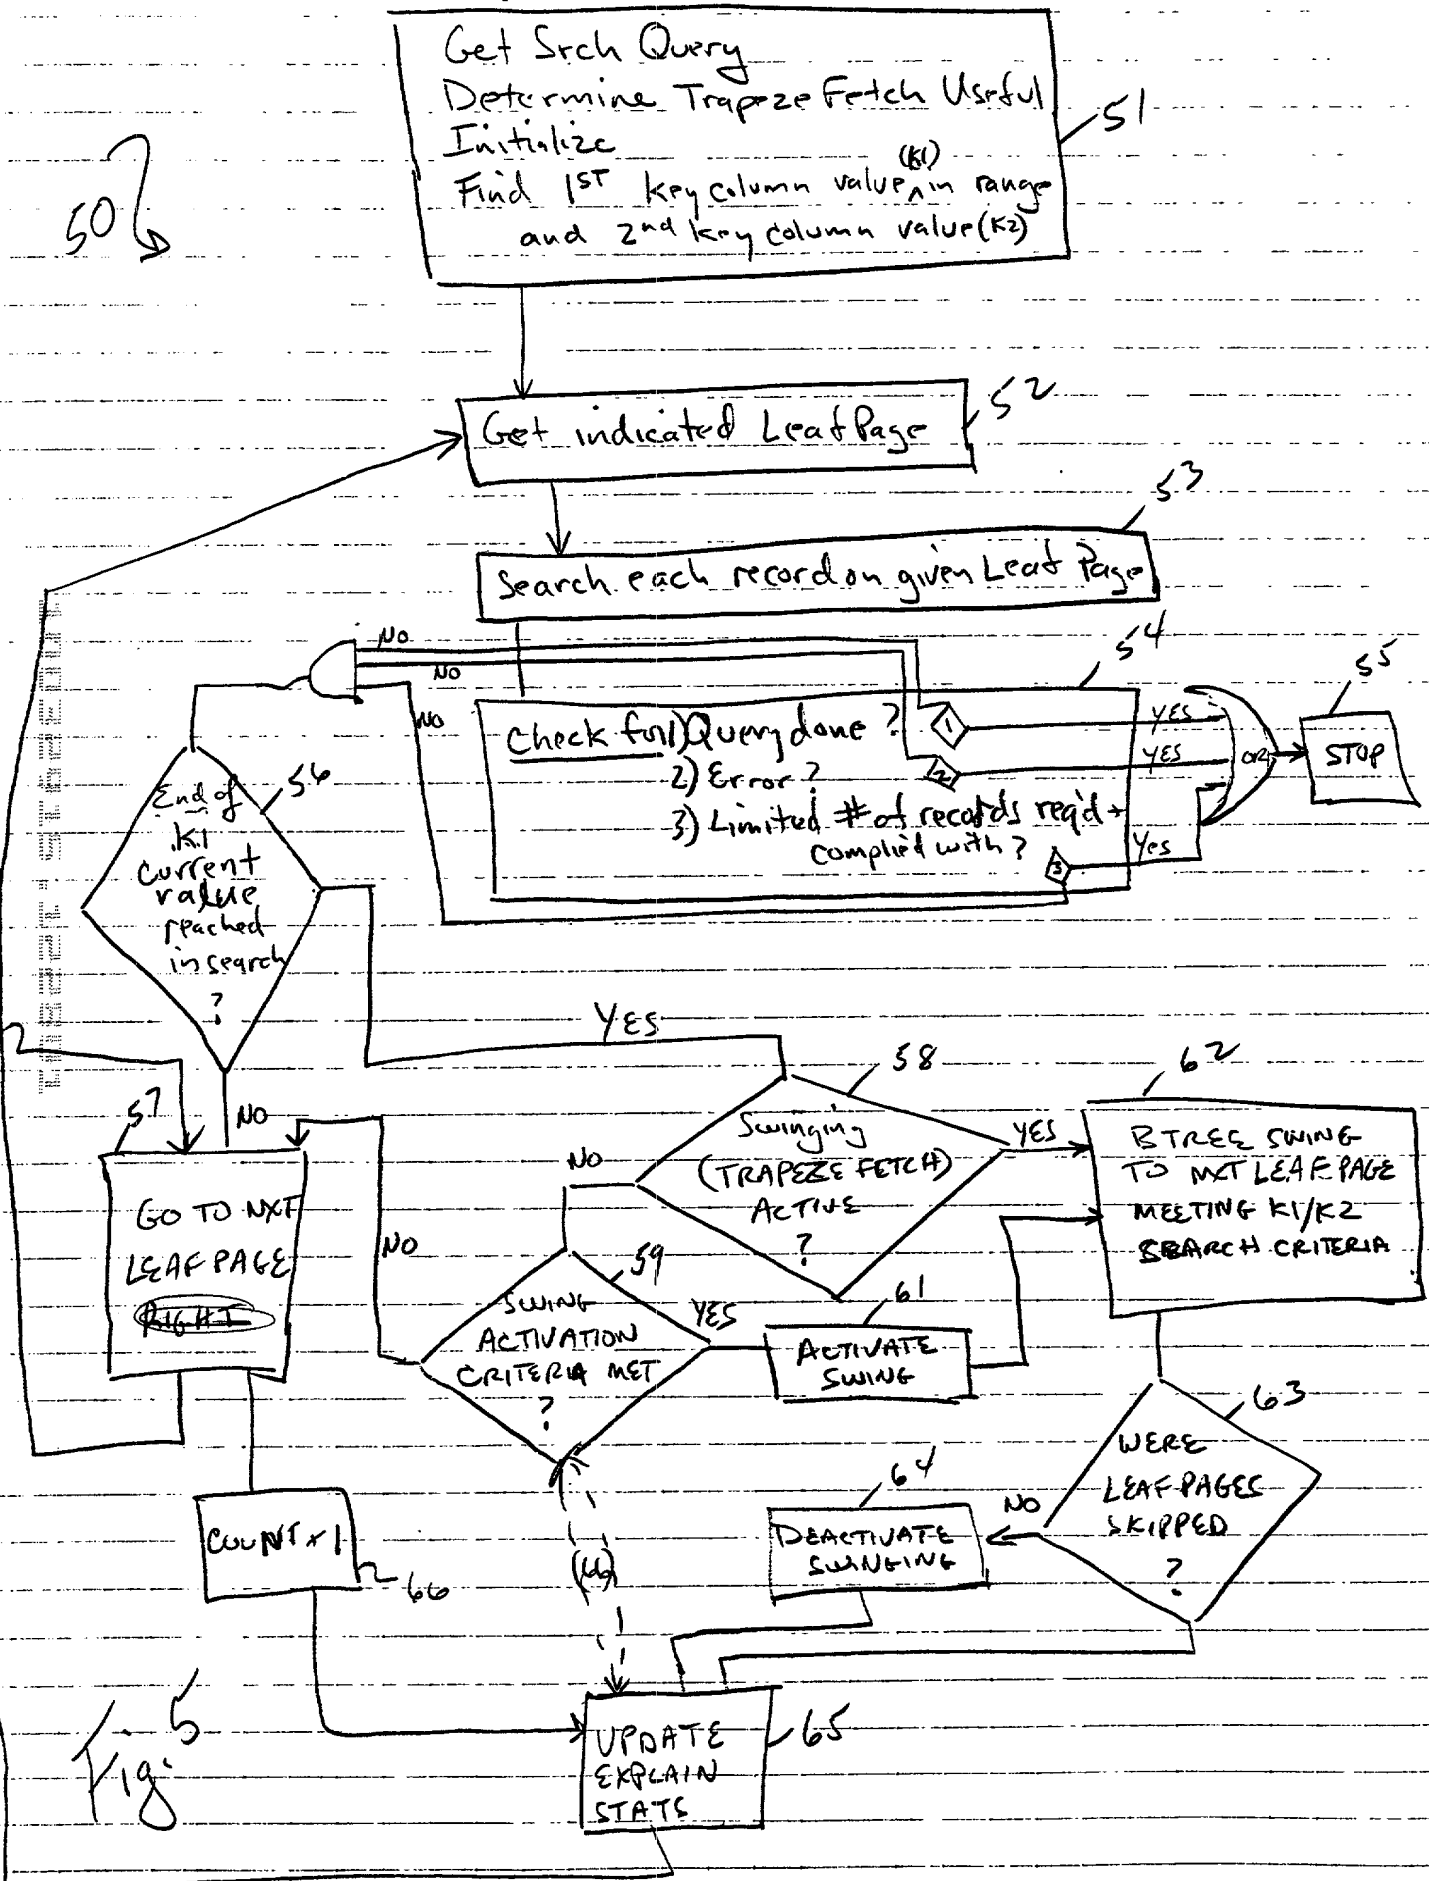 Get Srch Query
Determine Trapeze Fetch Useful
Initialize
(K1)
Find 1ST Key column value ^ in range
and 2nd Key column value (K2)
51
50
Get indicated Leaf Page
52
53
Search each record on given Leaf Page
NO
NO
NO
54
55
Check for 1) Query done ?
2) Error ?
3) Limited # of records req'd +
complied with ?
1
2
3
YES
YES
Yes
OR
STOP
End of
K1
current
value
reached
in search
?
56
YES
NO
57
GO TO NXT
LEAF PAGE
RIGHT
58
Swinging
(TRAPEZE FETCH)
ACTIVE
?
NO
YES
62
BTREE SWING
TO NXT LEAF PAGE
MEETING K1/K2
SEARCH CRITERIA
NO
59
SWING
ACTIVATION
CRITERIA MET
?
YES
61
ACTIVATE
SWING
63
WERE
LEAF PAGES
SKIPPED
?
NO
64
DEACTIVATE
SWINGING
COUNT + 1
66
(66)
UPDATE
EXPLAIN
STATS
65
Fig. 5